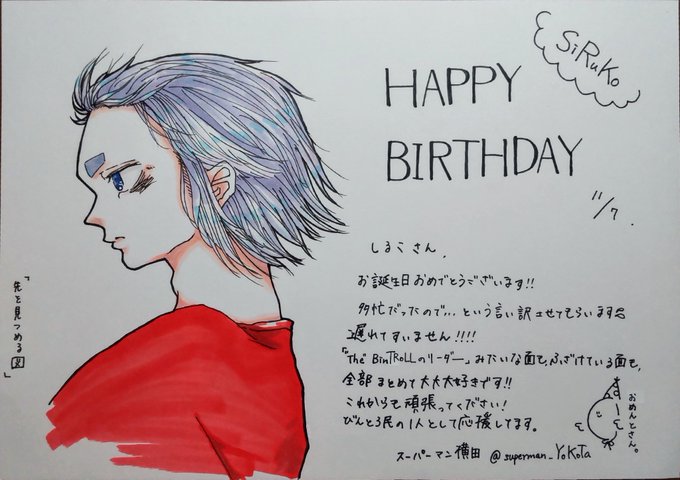 SiRuKo
HAPPY
BIRTHDAY
11/7.
しるこさん、
お誕生日おめでとうございます!!
多忙だったので、、、という言い訳させてもらいます
遅れてすいません!!!!
「The BinTRoLLのリーダー」みたいな面も、ふざけている面も、
全部まとめて大大大好きです!!
これからも頑張ってください!
びんとろ民の1人として応援してます。
スーパーマン横田 @superman_YoKoTa
おめんとさん。
「先を見つめる図」